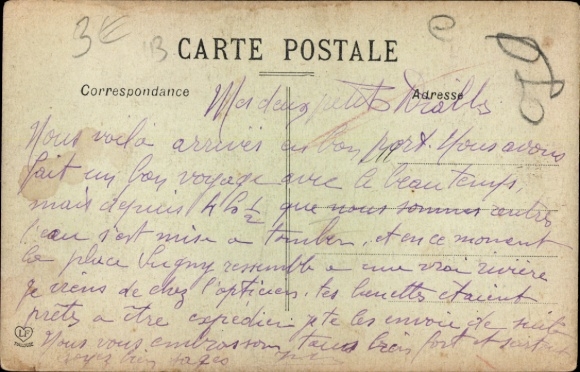 3€
13
CARTE POSTALE
Correspondance
Adresse
Mes deux petits Diables
Nous voilà arrivés en bon port. Nous avons
fait un bon voyage avec le beau temps,
mais depuis 4 h ½ que nous sommes rentrés
l'eau s'est mise a tomber, et en ce moment
la place Sugny ressemble a une vrai rivière
je viens de chez l'opticien, tes lunettes étaient
prêtes a être expedier je te les envoie de suite
Nous vous embrassons tous bien fort et surtout
soyez bien sages